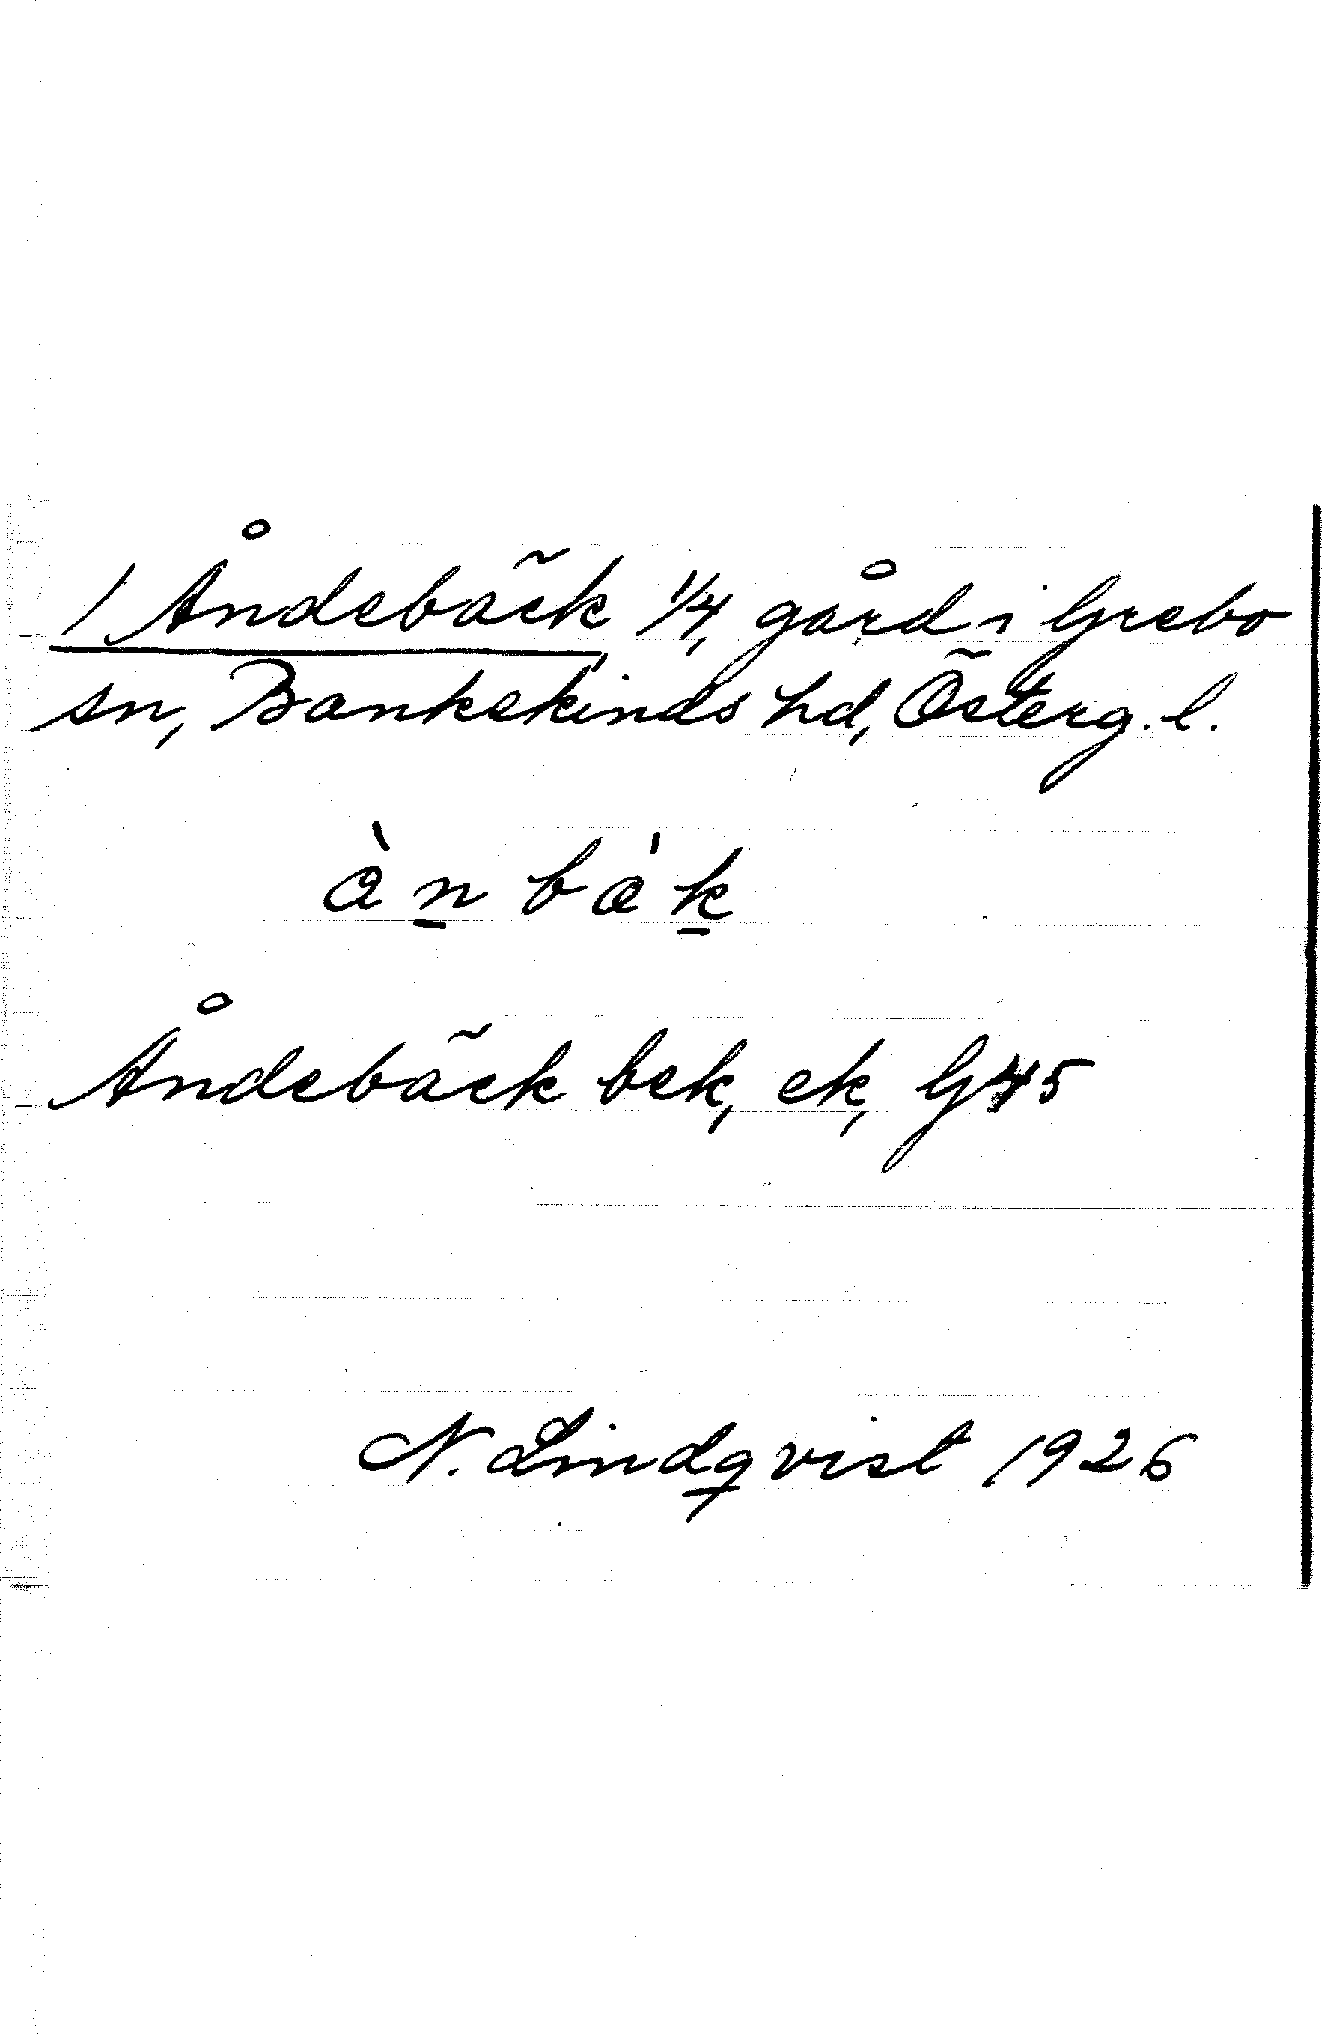 1 Åndebäck 1/4, gård i Grebo
sn, Bankekinds hd, Österg. l.
ànbák
Åndebäck bek, ek, G 45
N. Lindqvist 1926